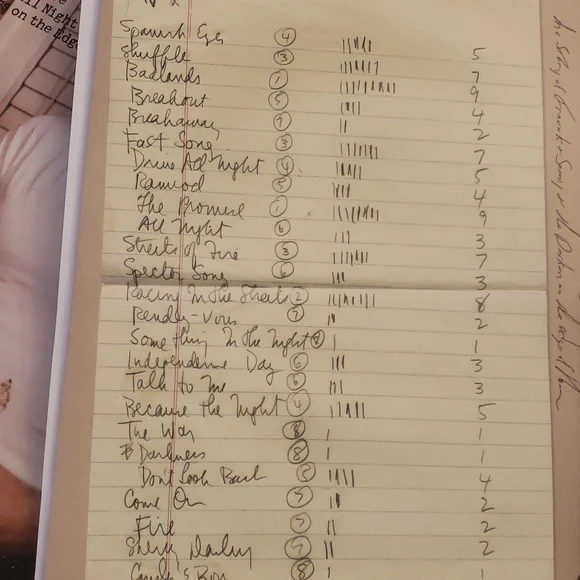 ill Night
on the Edge
Spanish Eyes 4 5
Shuffle 3 7
Badlands 1 9
Breakout 5 4
Breakaway 7 2
Fast Song 3 7
Drive All Night 4 5
Ramrod 5 4
The Promise 1 9
All Night 6 3
Streets of Fire 3 7
Spector Song 6 3
Racing In the Streets 2 8
Rendez-vous 7 2
Something In the Night 8 1
Independence Day 6 3
Talk to Me 6 3
Because the Night 4 5
The Way 8 1
Darkness 8 1
Don't Look Back 5 4
Come On 7 2
Fire 7 2
Sherry Darling 7 2
Candy's Boy 8 1